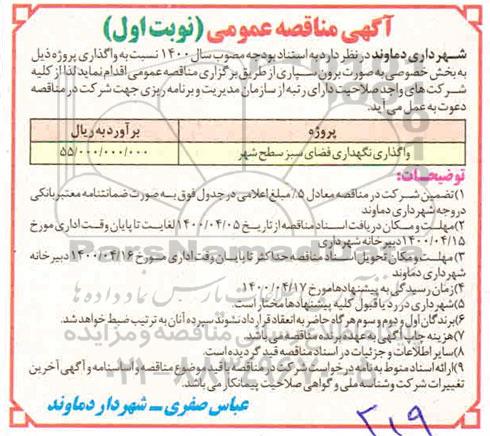 آگهی مناقصه عمومی (نوبت اول)
شهرداری دماوند در نظر دارد به استناد بودجه مصوب سال ۱۴۰۰ نسبت به واگذاری پروژه ذیل
به بخش خصوصی به صورت برون سپاری از طریق برگزاری مناقصه عمومی اقدام نماید لذا از کلیه
شرکت های واجد صلاحیت دارای رتبه از سازمان مدیریت و برنامه ریزی جهت شرکت در مناقصه
دعوت به عمل می آید.
پروژه برآورد به ریال
واگذاری نگهداری فضای سبز سطح شهر ۵۵/۰۰۰/۰۰۰/۰۰۰
توضیحات:
۱)تضمین شرکت در مناقصه معادل ۵٪ مبلغ اعلامی در جدول فوق به صورت ضمانتنامه معتبر بانکی
در وجه شهرداری دماوند
۲)مهلت و مکان دریافت اسناد مناقصه از تاریخ ۱۴۰۰/۰۴/۰۵ لغایت تا پایان وقت اداری مورخ
۱۴۰۰/۰۴/۱۵ دبیرخانه شهرداری
۳)مهلت و مکان تحویل اسناد مناقصه حداکثر تا پایان وقت اداری مورخ ۱۴۰۰/۰۴/۱۶ دبیرخانه
شهرداری دماوند
۴)زمان رسیدگی به پیشنهادها مورخ ۱۴۰۰/۰۴/۱۷
۵)شهرداری در رد یا قبول کلیه پیشنهادها مختار است.
۶)برندگان اول و دوم و سوم هرگاه حاضر به انعقاد قرارداد نشوند سپرده آنان به ترتیب ضبط خواهد شد.
۷)هزینه چاپ آگهی به عهده برنده مناقصه می باشد.
۸)سایر اطلاعات و جزئیات در اسناد مناقصه قید گردیده است.
۹)ارائه اسناد منوط به نامه درخواست شرکت در مناقصه با قید موضوع مناقصه و اساسنامه و آگهی آخرین
تغییرات شرکت و شناسنامه ملی و گواهی صلاحیت پیمانکار می باشد.
عباس صفری - شهردار دماوند
۲۱۹